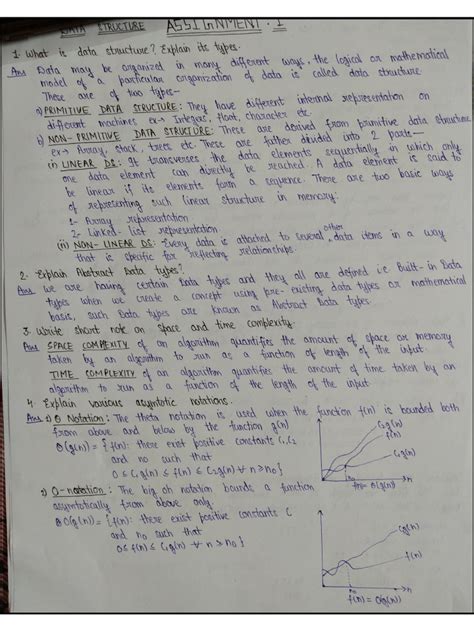 DATA STRUCTURE ASSIGNMENT - 1
1. What is data structure? Explain its types.
Ans Data may be organized in many different ways, the logical or mathematical
model of a particular organization of data is called data structure.
These are of two types-
a) PRIMITIVE DATA STRUCTURE: They have different internal representation on
different machines ex→ Integers, float, character etc.
b) NON-PRIMITIVE DATA STRUCTURE: These are derived from primitive data structure
ex→ Array, stack, trees etc. These are futher devided into 2 parts—
(i) LINEAR DS: It transverses the data elements sequentially in which only
one data element can directly be reached. A data element is said to
be linear if its elements form a sequence. There are two basic ways
of representing such linear structure in memory.
1- Array representation
2- Linked-list representation
(ii) NON-LINEAR DS: Every data is attached to several other data items in a way
that is specific for reflecting relationships.
2. Explain Abstract Data types?
Ans We are having certain Data types and they all are defined i.e Built-in Data
types when we create a concept using pre-existing data types or mathematical
basis, such Data types are known as Abstract Data types.
3. Write short note on Space and time complexity.
Ans SPACE COMPLEXITY of an algorithm quantifies the amount of space or memory
taken by an algorithm to run as a function of length of the input.
TIME COMPLEXITY of an algorithm quantifies the amount of time taken by an
algorithm to run as a function of the length of the input
4. Explain various asymtotic notations.
Ans 1) Θ Notation: The theta notation is used when the function f(n) is bounded both
from above and below by the function g(n)
Θ(g(n)) = {f(n): there exist positive constants C1, C2
and no such that
0 ≤ C1g(n) ≤ f(n) ≤ C2g(n) ∀ n ≥ n0}
C2g(n)
f(n)
C1g(n)
n
2) O-notation: The big oh notation bounds a function
asymptotically from above only.
O(g(n)) = {f(n): there exist positive constants C
and no such that
0 ≤ f(n) ≤ C1g(n) ∀ n ≥ n0}
Cg(n)
f(n)
n0
n
f(n) = O(g(n))